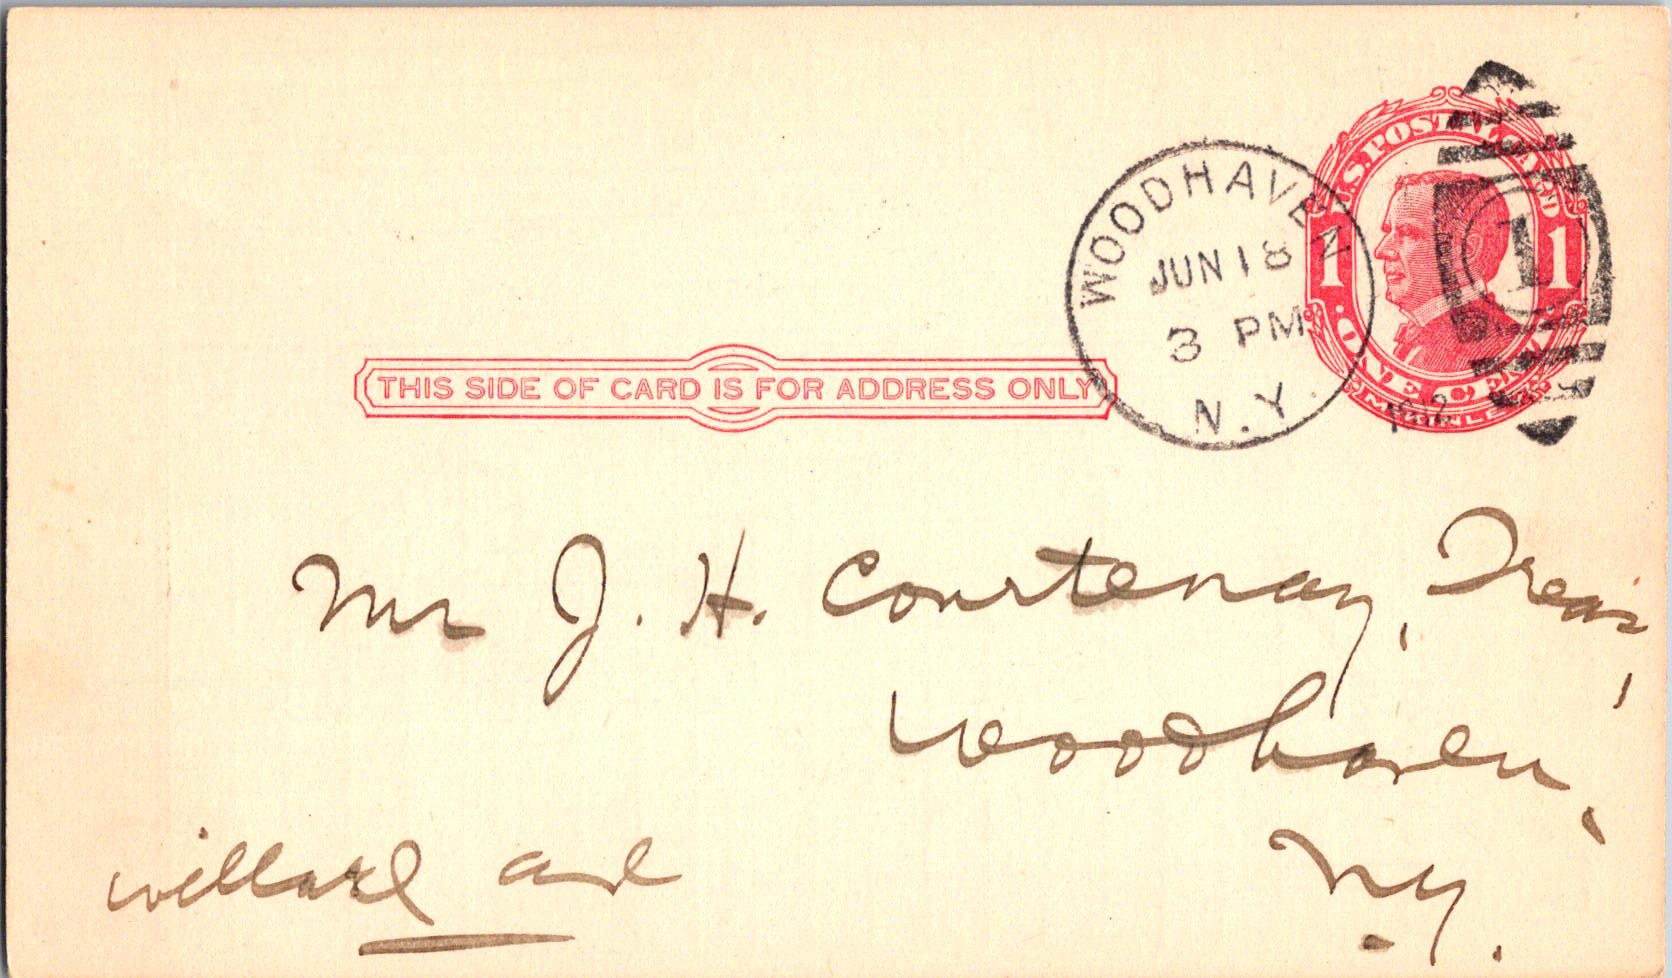 U.S. POSTAL CARD
1 1
ONE CENT
WOODHAVEN
JUN 18
3 PM
N.Y.
1
THIS SIDE OF CARD IS FOR ADDRESS ONLY
Mr J. H. Courtenay, Treas,
Woodhaven,
N.Y.
Willard ave